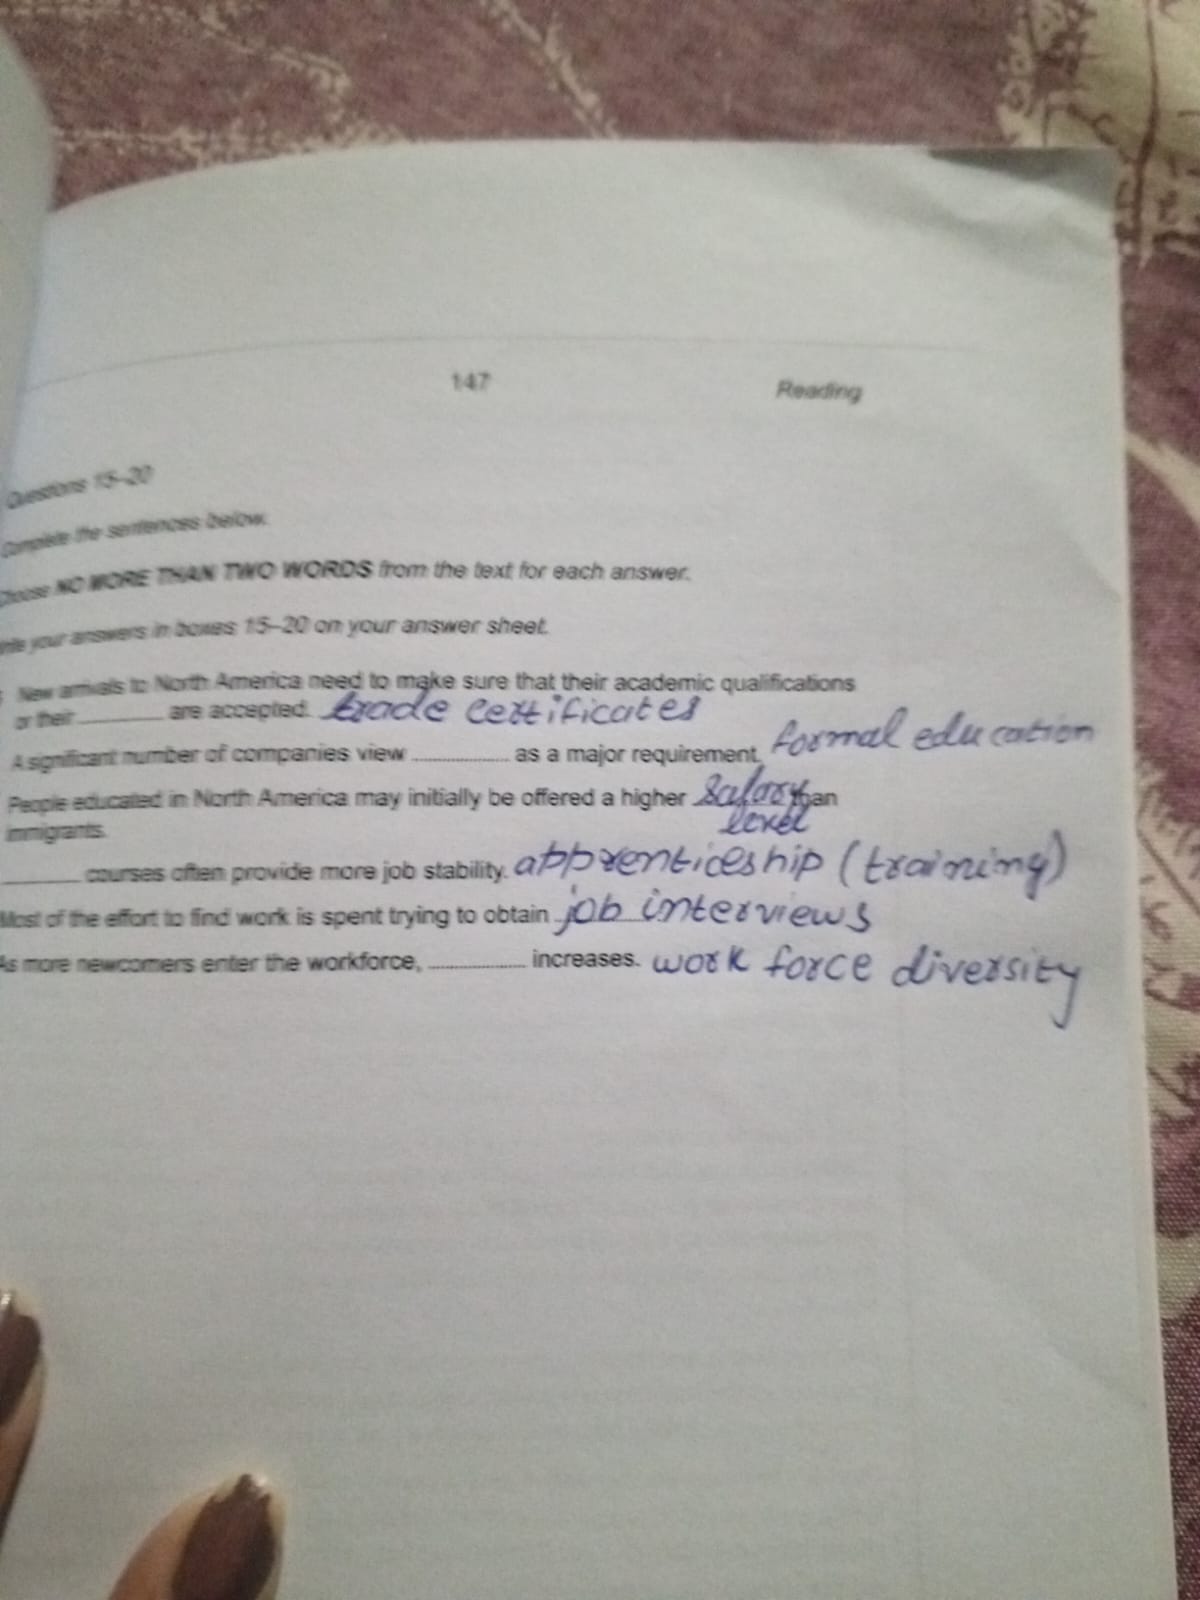 147 Reading
Questions 15–20
Complete the sentences below.
Choose NO MORE THAN TWO WORDS from the text for each answer.
your answers in boxes 15–20 on your answer sheet.
New arrivals to North America need to make sure that their academic qualifications
or their ________ are accepted. trade certificates
A significant number of companies view ........ as a major requirement. formal education
People educated in North America may initially be offered a higher salary than
level
immigrants.
________ courses often provide more job stability. apprenticeship (training)
Most of the effort to find work is spent trying to obtain job interviews
As more newcomers enter the workforce, ........ increases. work force diversity